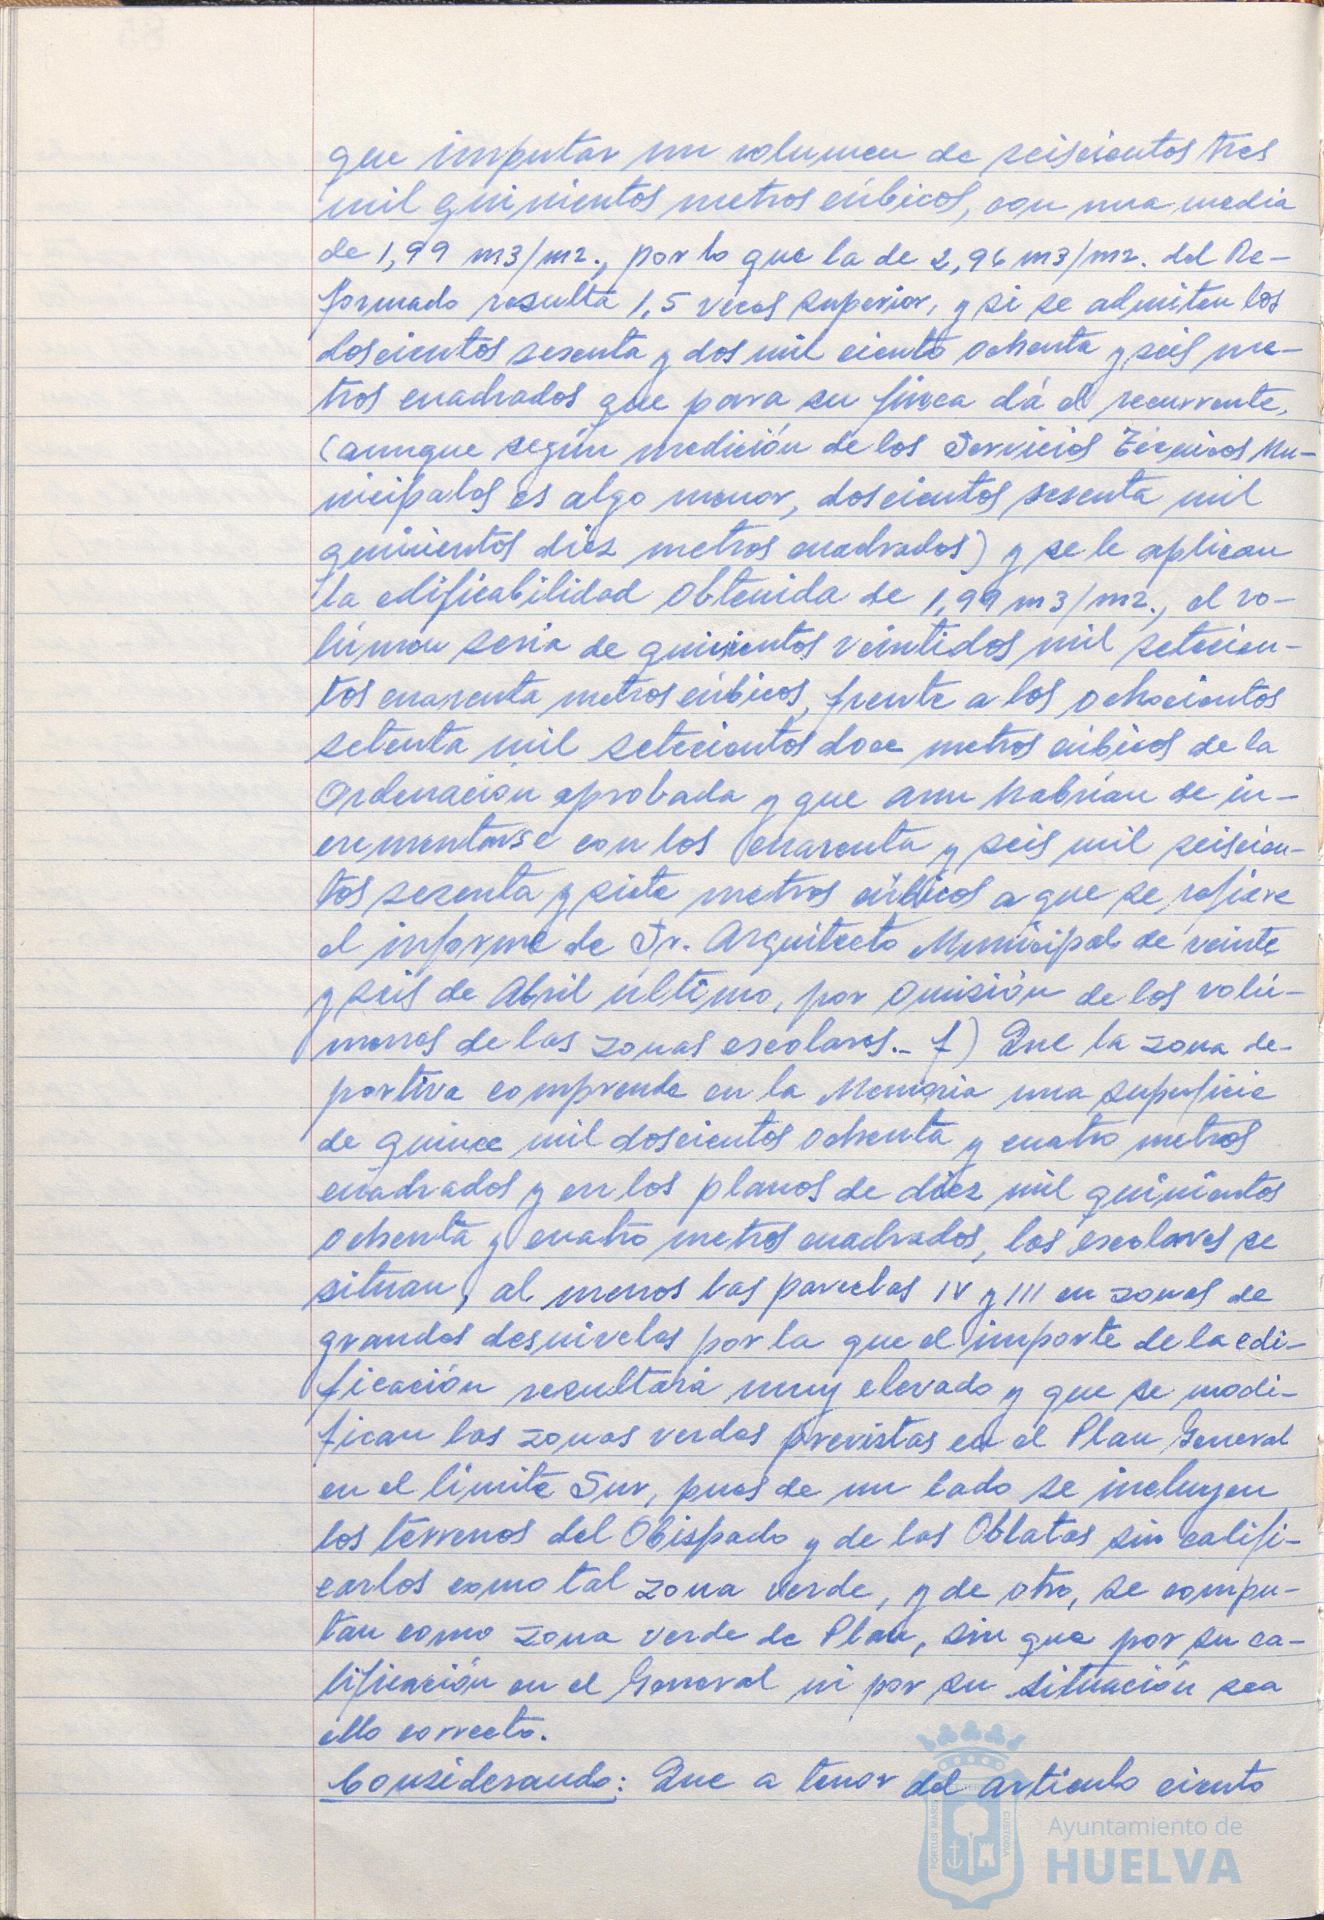 que imputar un volumen de seiscientos tres
mil quinientos metros cúbicos, con una media
de 1,99 m3/m2., por lo que la de 2,96 m3/m2. del Re-
formado resulta 1,5 veces superior, y si se admiten los
doscientos sesenta y dos mil ciento ochenta y seis me-
tros cuadrados que para su finca dá el recurrente,
(aunque según medición de los Servicios Técnicos Mu-
nicipales es algo menor, doscientos sesenta mil
quinientos diez metros cuadrados) y se le aplican
la edificabilidad obtenida de 1,99 m3/m2., el vo-
lúmen seria de quinientos veintidos mil setecien-
tos cuarenta metros cúbicos, frente a los ochocientos
setenta mil setecientos doce metros cúbicos de la
Ordenación aprobada y que aun habrían de in-
crementarse con los cuarenta y seis mil seiscien-
tos sesenta y siete metros cúbicos a que se refiere
el informe de Sr. Arquitecto Municipal de veinte
y seis de Abril último, por omisión de los volú-
menes de las zonas escolares.- f) Que la zona de-
portiva comprende en la Memoria una superficie
de quince mil doscientos ochenta y cuatro metros
cuadrados y en los planos de diez mil quinientos
ochenta y cuatro metros cuadrados, las escolares se
situan, al menos las parcelas IV y III en zonas de
grandes desniveles por la que el importe de la edi-
ficación resultará muy elevado y que se modi-
fican las zonas verdes previstas en el Plan General
en el limite Sur, pues de un lado se incluyen
los terrenos del Obispado y de las Oblatas sin califi-
carlos como tal zona verde, y de otro, se compu-
tan como zona verde de Plan, sin que por su ca-
lificación en el General ni por su situación sea
ello correcto.
Considerando: Que a tenor del artículo ciento
PORTUS MARIS
CUSTODIA
Ayuntamiento de
HUELVA